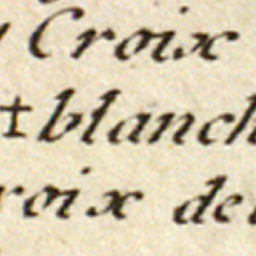 Croix
blanch
roix de